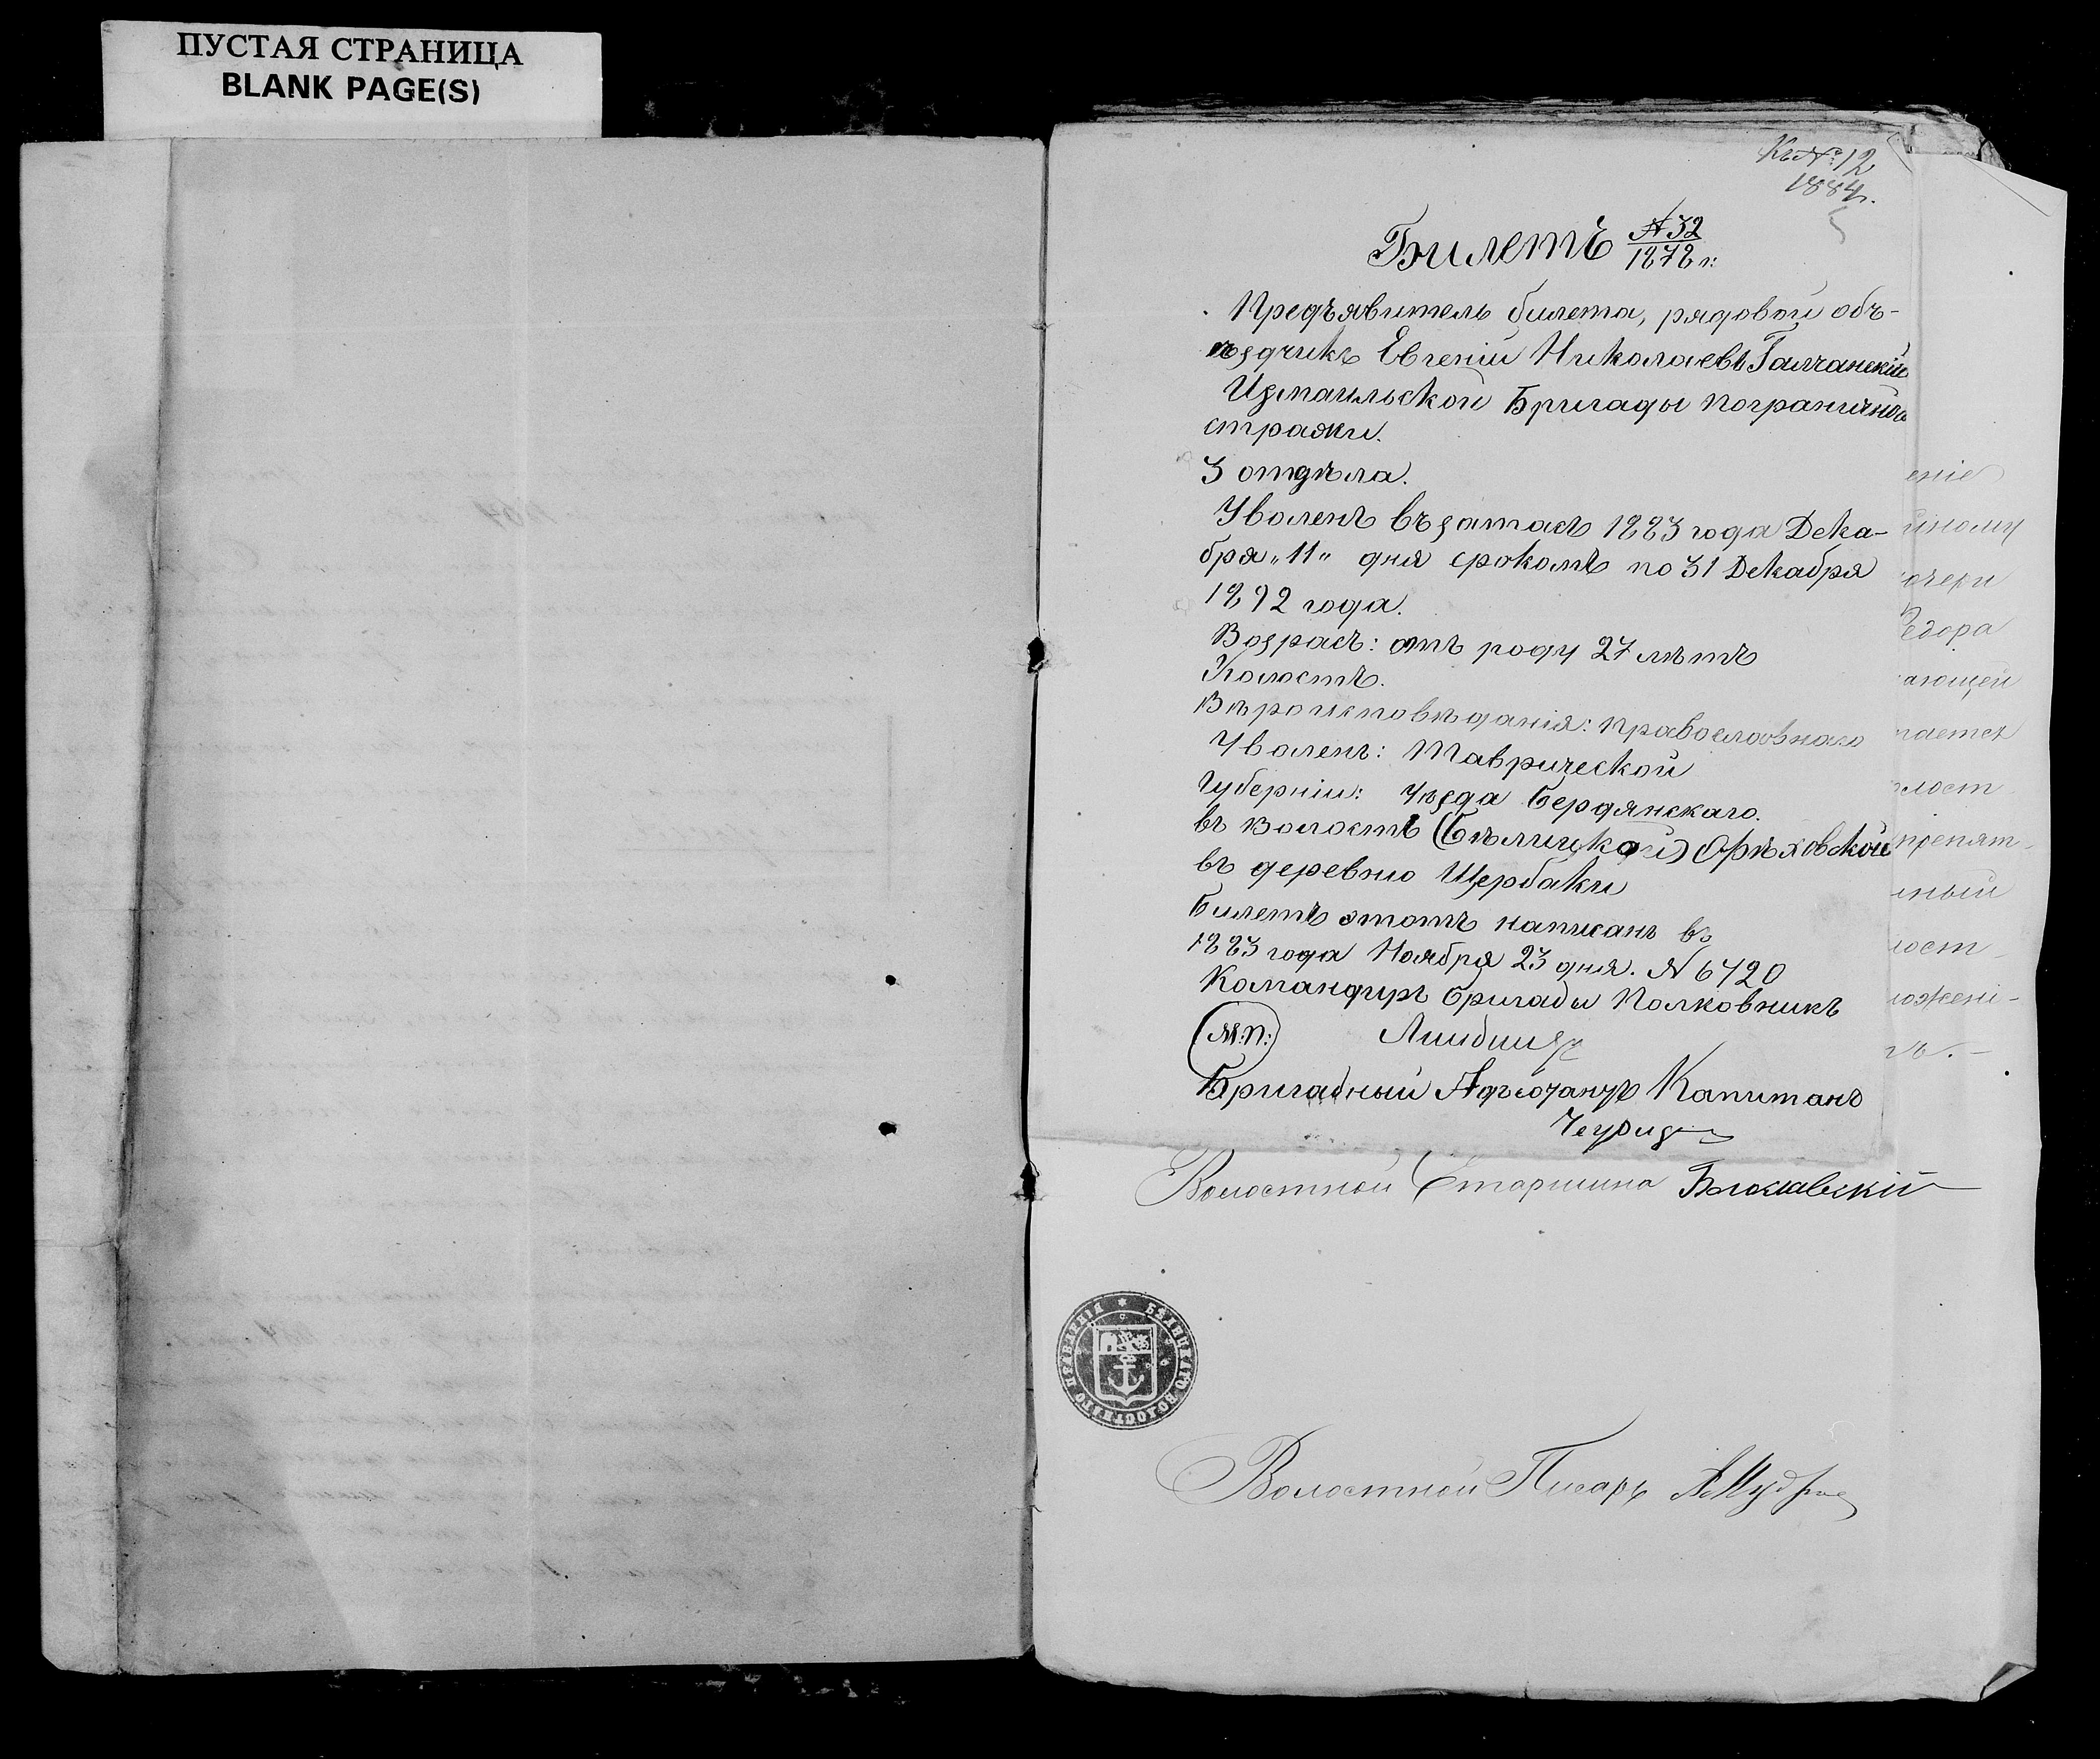 ПУСТАЯ СТРАНИЦА
BLANK PAGE(S)
Къ № 12
1884 г.
Билетъ № 32
1878 г:
Предъявитель билета, рядовой объ-
ѣздчикъ Евгеній Николаевъ Галчанскій
Измаильской Бригады пограничной
стражи.
3 отдѣла.
Уволенъ въ запасъ 1883 года Дека-
бря „11" дня срокомъ по 31 Декабря
1892 года.
Возрасъ: отъ роду 27 лѣтъ
Холостъ.
Вѣроисповѣданія: православнаго
Уволенъ: Таврической
Губерніи: Уѣзда Бердянскаго.
въ волость (Бѣлицкой) Орѣховской
въ деревню Щербаки
Билетъ этотъ написанъ въ
1883 года Ноября 23 дня. № 6720
Командиръ бригады Полковникъ
(М:П:)
Бригадный Адъютантъ Капитанъ
Волостной Старшина
БѢЛИЦКАГО ВОЛОСТНАГО ПРАВЛЕНІЯ
Волостной Писарь
еніе
дочери
Ѳедора
ающей
лост
препят-
ный
ложені-